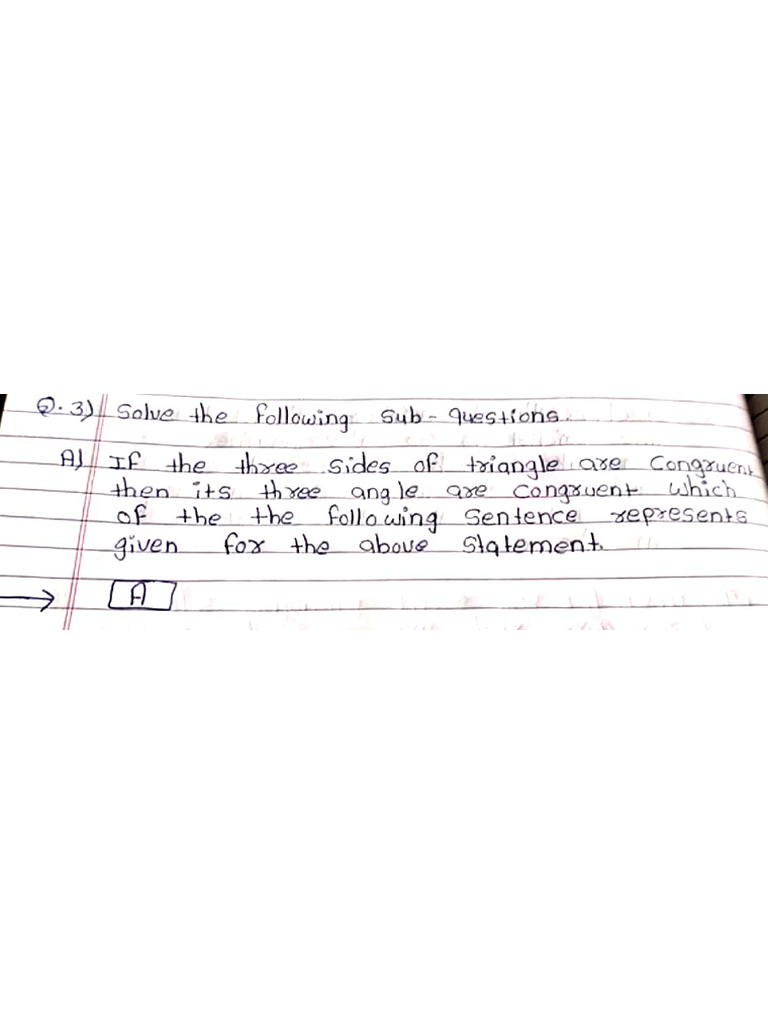 Q.3) Solve the following sub-questions.
A) If the three sides of triangle are congruent
then its three angle are congruent which
of the the following sentence represents
given for the above statement.
→ A